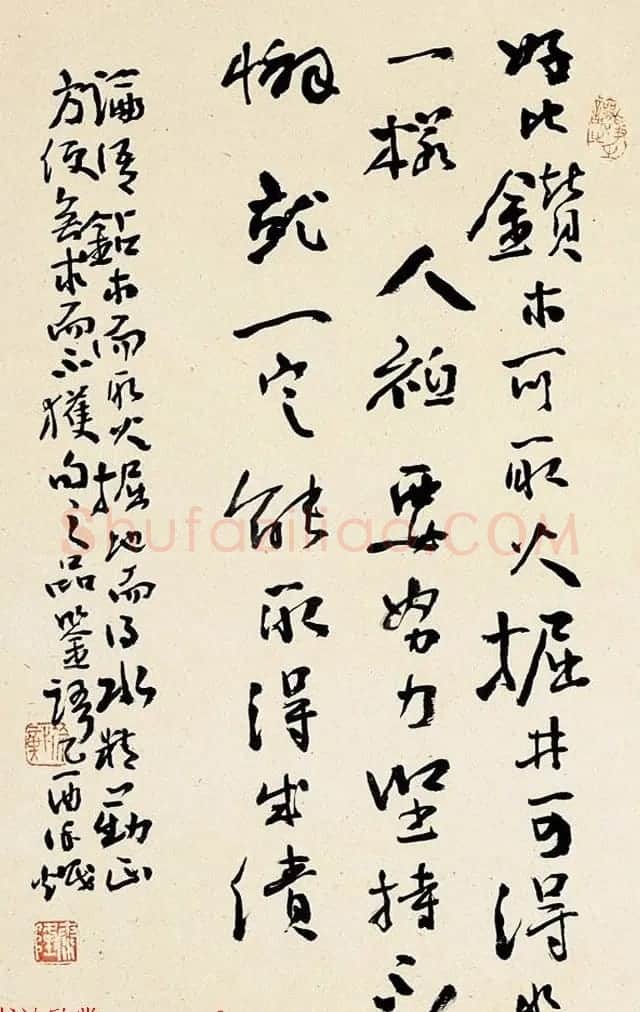 好比鑽木可取火掘井可得水
一樣人祗要努力堅持不
懈就一定能取得成績
鉆木而取火掘地而得水精勤正
方便無求而不獲句之品鉴語乙酉
Shufaziliao.COM